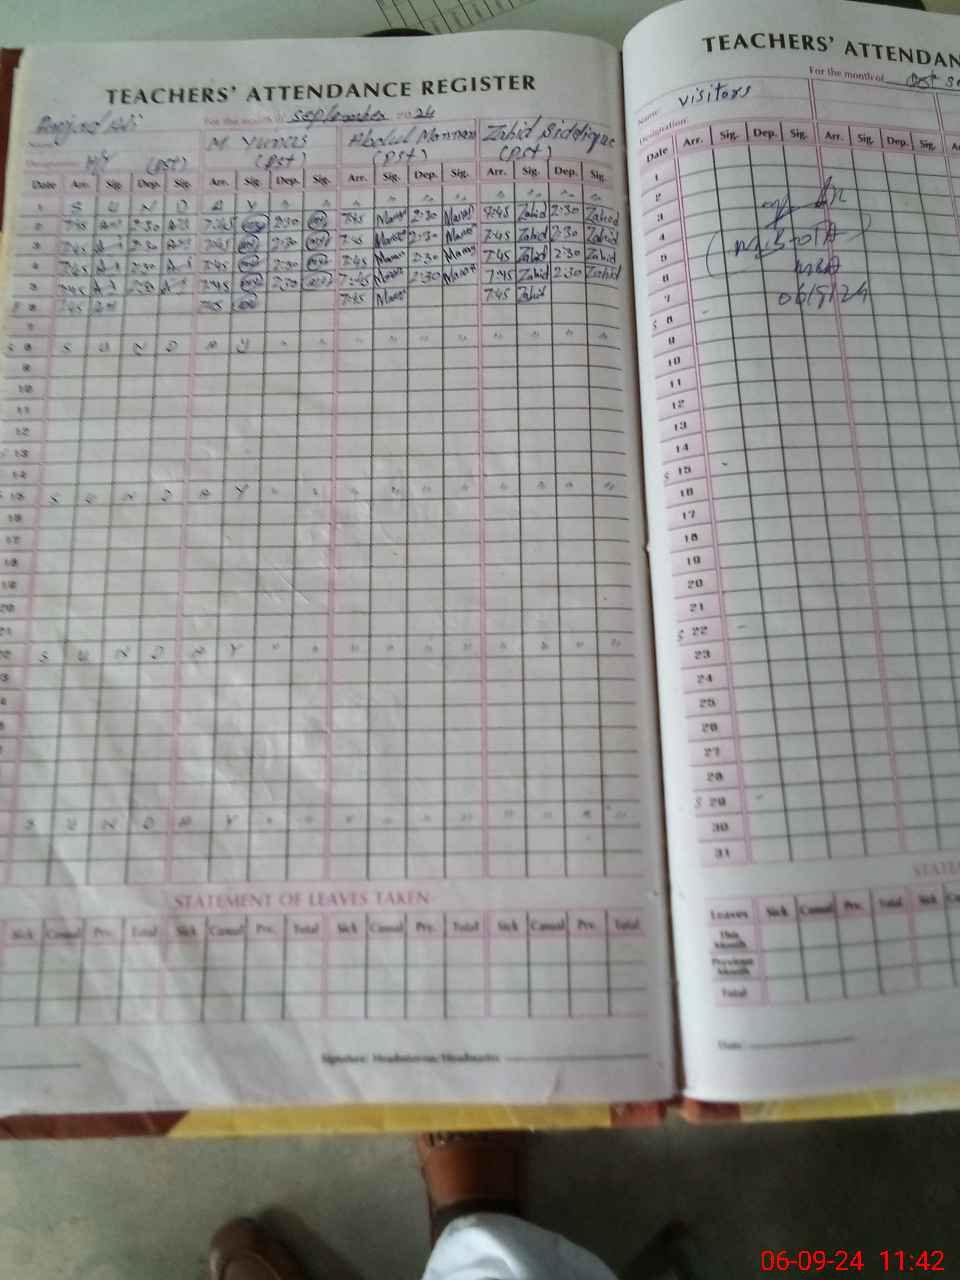 TEACHERS' ATTENDANCE REGISTER
For the month of September 2024
Name
M. Yunas Abdul Mannan Zahid Siddique
Designation (PST) (PST) (PST) (PST)
Date Arr. Sig. Dep. Sig. Arr. Sig. Dep. Sig. Arr. Sig. Dep. Sig. Arr. Sig. Dep. Sig.
1 S U N D A Y " " " " " " " " " "
2 7:45 2:30 7:45 2:30 7:45 Manan 2:30 Manan 7:45 Zahid 2:30 Zahid
3 7:45 2:30 7:45 2:30 7:45 Manan 2:30 Manan 7:45 Zahid 2:30 Zahid
4 7:45 2:30 7:45 2:30 7:45 Manan 2:30 Manan 7:45 Zahid 2:30 Zahid
5 7:45 2:30 7:45 2:30 7:45 Manan 2:30 Manan 7:45 Zahid 2:30 Zahid
6 7:45 7:45 7:45 Manan 7:45 Zahid
7
S 8 S U N D A Y " " " " " " " " " "
9
10
11
12
13
14
S 15 S U N D A Y " " " " " " " " " "
16
17
18
19
20
21
22 S U N D A Y " " " " " " " " " "
S U N D A Y " " " " " " " " " "
STATEMENT OF LEAVES TAKEN
Sick Casual Prv. Total Sick Casual Prv. Total Sick Casual Prv. Total Sick Casual Prv. Total
Signature: Headmistress/Headmaster
TEACHERS' ATTENDAN
For the month of
Name visitors
Designation
Date Arr. Sig. Dep. Sig. Arr. Sig. Dep. Sig.
1
2
3
4
5
6
7 06/9/24
S 8
9
10
11
12
13
14
S 15
16
17
18
19
20
21
S 22
23
24
25
26
27
28
S 29
30
31
STATE
Leaves Sick Casual Prv. Total Sick
This Month
Previous Month
Total
Date:
06-09-24 11:42